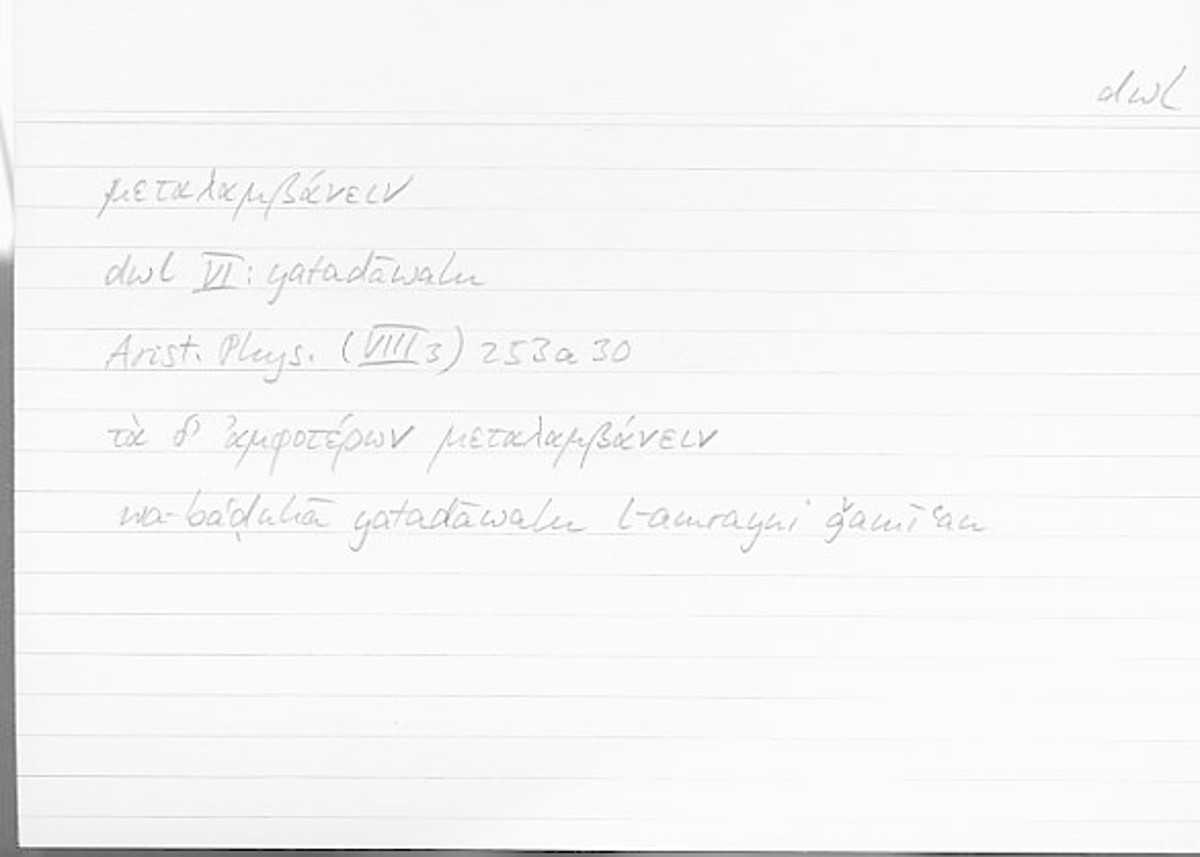 dwl
μεταλαμβάνειν
dwl VI: yatadāwalu
Arist. Phys. (VIII 3) 253a 30
τὰ δ' ἀμφοτέρων μεταλαμβάνειν
wa-baʿḍuhā yatadāwalu l-amrayni ǧamīʿan